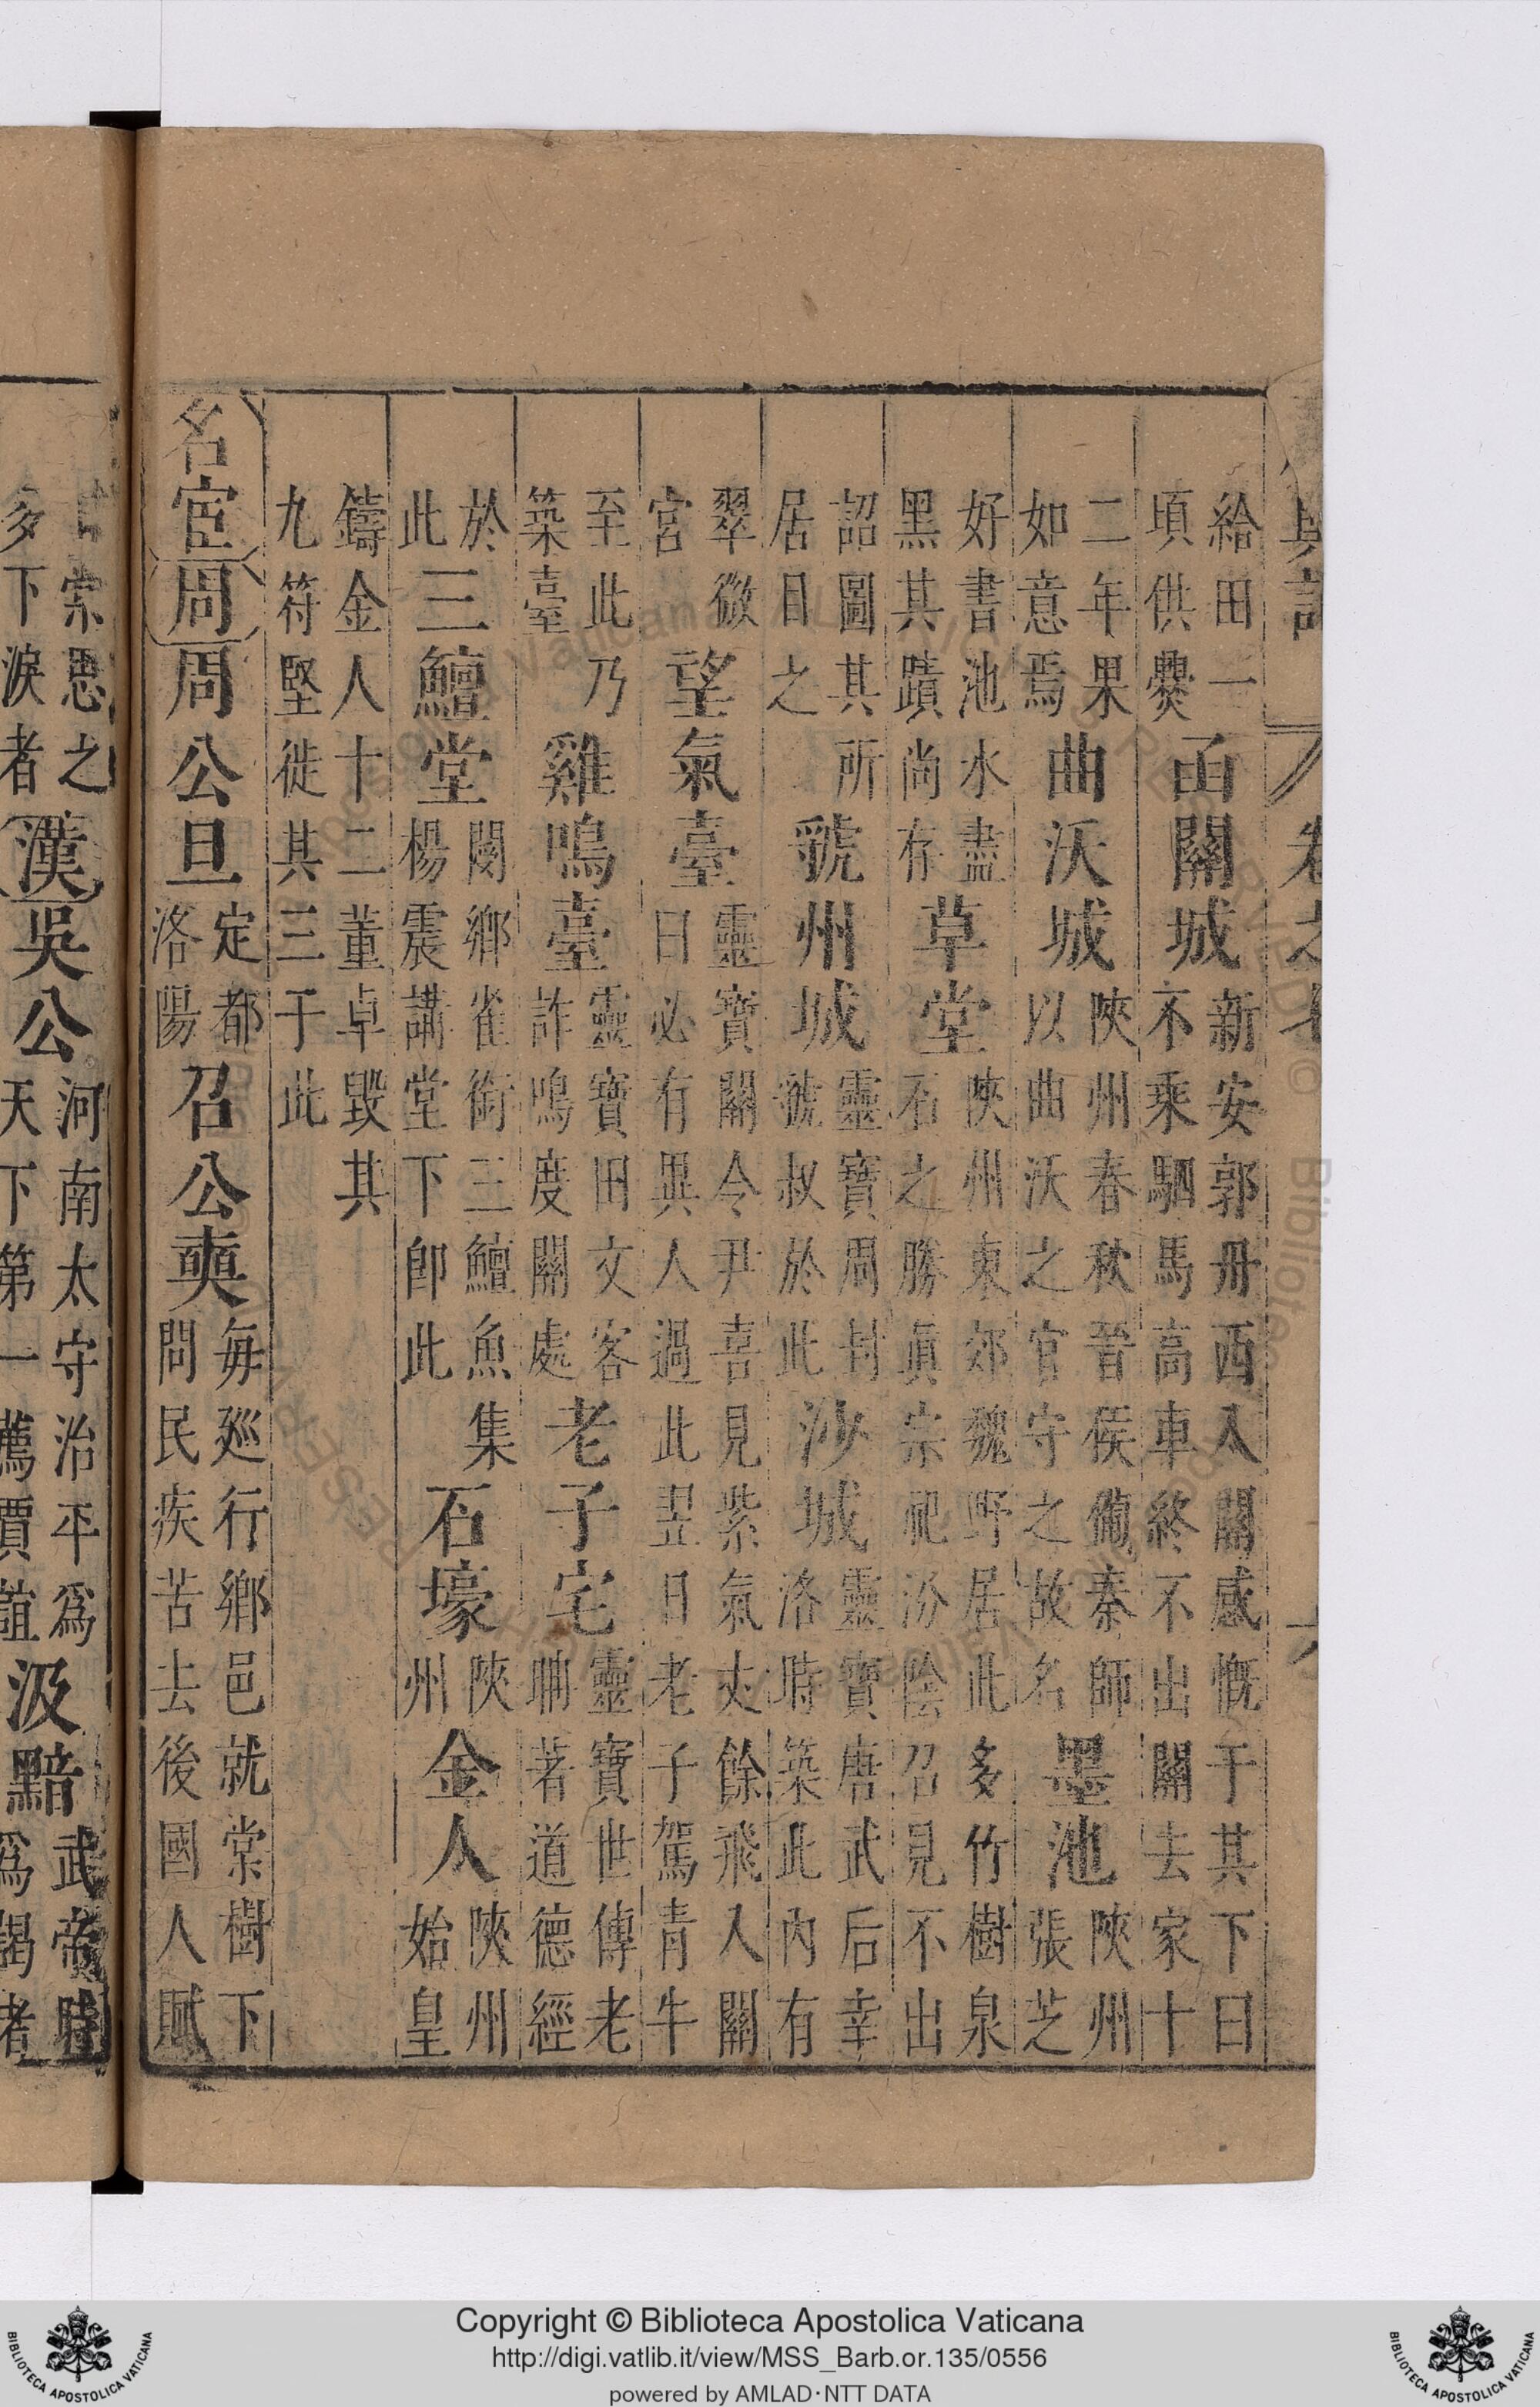 卷之
給田一頃供爨函關城新安郭丹西入關感慨于其下曰不乘駟馬高車終不出關去家十
二年果如意焉曲沃城陝州春秋晉侯備秦師以曲沃之官守之故名墨池陝州張芝
好書池水盡黑其蹟尚存草堂陝州東郊魏野居此多竹樹泉石之勝眞宗祀汾陰召見不出
詔圖其所居目之虢州城靈寶周封虢叔於此沙城靈寶唐武后幸洛時築此內有
翠微宮望氣臺靈寶關令尹喜見紫氣丈餘飛入關曰必有異人過此翌日老子駕青牛
至此乃築臺雞鳴臺靈寶田文客詐鳴度關處老子宅靈寶世傳老聃著道德經
於此三鱣堂閿鄉雀銜三鱣魚集楊震講堂下卽此石壕陝州金人陝州始皇
鑄金人十二董卓毀其九符堅徙其三于此
名宦周周公旦定都洛陽召公奭每廵行鄉邑就棠樹下問民疾苦去後國人賦
棠思之多下淚者漢吳公河南太守治平爲天下第一薦賈誼汲黯武帝時爲謁者
Copyright © Biblioteca Apostolica Vaticana
http://digi.vatlib.it/view/MSS_Barb.or.135/0556
powered by AMLAD·NTT DATA
BIBLIOTECA APOSTOLICA VATICANA
BIBLIOTECA APOSTOLICA VATICANA